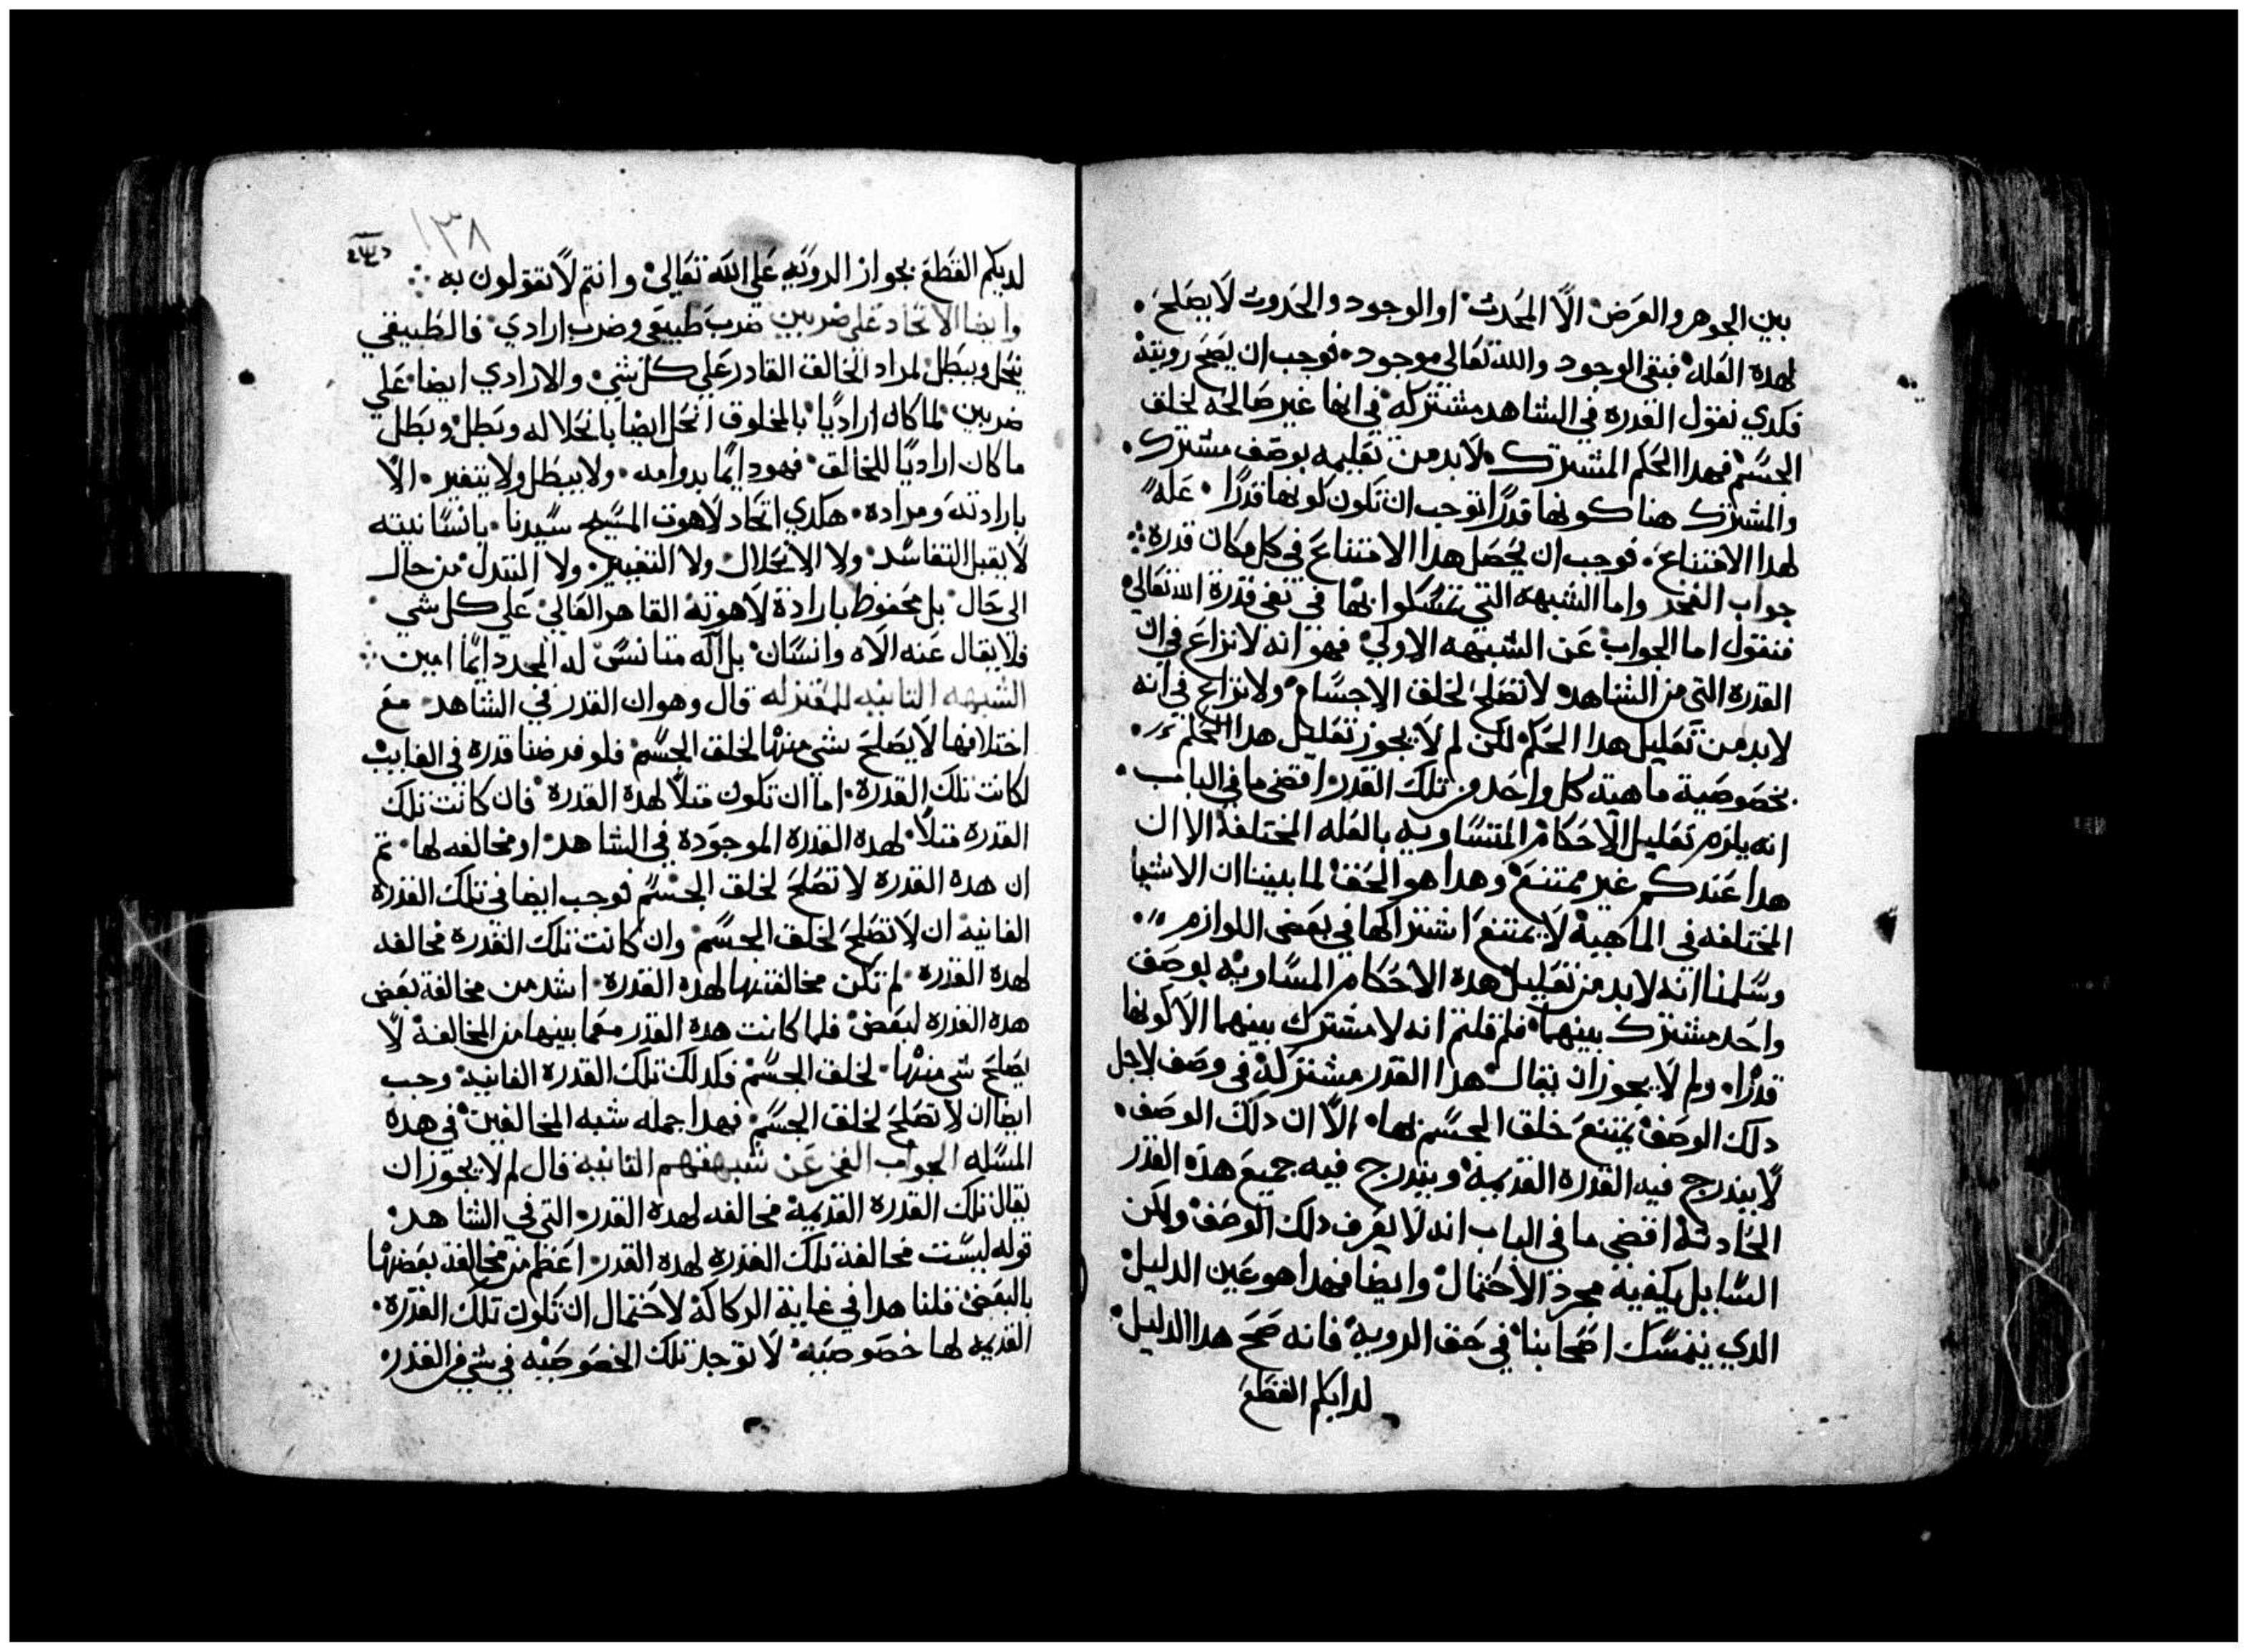 بين الجوهر والعرض الا المحدث او الوجود والحدوث لا يصلح
لهده العله فبقى الوجود والله تعالي موجود فوجب ان يصح رويته
فكدي نقول القدره في الشاهد مشتركه في انها غير صالحه لخلق
الجسم فهدا الحكم المشترك لابد من تعليمه بوصف مشترك
والمشترك هنا كونها قدرًا فوجب ان تكون كونها قدرًا عله
لهدا الامتناع فوجب ان يحصل هدا الامتناع في كل مكان قدره
جواب الفخر واما الشبهه التي تمسكوا بها في نفي قدرة الله تعالي
فنقول اما الجواب عن الشبهه الاولي فهو انه لا نزاع في ان
القدره التي من الشاهد لا تصلح لخلق الاجسام ولا نزاع في انه
لابد من تعليل هدا الحكم لكن لم لا يجوز تعليل هدا الحكم
بخصوصية ماهية كل واحد من تلك القدر اقصى ما في الباب
انه يلزم تعليل الاحكام المتساويه بالعله المختلفة الا ان
هدا عندكم غير ممتنع وهدا هو الحق لما بينا ان الاشيا
المختلفه في الماهية لا يمتنع اشتراكها في بعض اللوازم
وسلمنا انه لابد من تعليل هده الاحكام المساويه بوصف
واحد مشترك بينهما فلم قلتم انه لا مشترك بينهما الا كونها
قدرًا ولم لا يجوز ان يقال هدا القدر مشتركة في وصف لاجل
دلك الوصف يمتنع خلق الجسم بها الا ان دلك الوصف
لا يندرج فيه القدره القديمة ويندرج فيه جميع هده القدر
الحادثة اقصى ما في الباب انه لا يعرف دلك الوصف ولكن
السايل يكفيه مجرد الاحتمال وايضا فهدا هو عين الدليل
الدي يتمسك اصحابنا في حق الرويه فانه صح هدا الدليل
لدايكم القطع
١٣٨
لديكم القطع بجواز الرويه علي الله تعالي وانتم لا تقولون به
وايضا الاتحاد علي ضربين ضرب طبيعي وضرب ارادي فالطبيعي
ينحل ويبطل لمراد الخالق القادر علي كل شي والارادي ايضا علي
ضربين لما كان اراديًا بالمخلوق انحل ايضا بانحلاله وبطل وبطل
ما كان اراديًا للخالق فهو دايمًا بدوامه ولا يبطل ولا يتغير الا
بارادته ومراده هكدي اتحاد لاهوت المسيح سيدنا بانسانيته
لا يقبل التفاسد ولا الانحلال ولا التغيير ولا التبدل من حال
الى حال بل محفوظ بارادة لاهوته القاهر العالي علي كل شي
فلا يقال عنه الاه وانسان بل اله متانس له المجد دايمًا امين
الشبهه التانيه للمعتزله قال وهو ان القدر في الشاهد مع
اختلافها لا يصلح شي منها لخلق الجسم فلو فرضنا قدرة في الغايب
لكانت تلك القدرة اما ان تكون مثلا لهده القدرة فان كانت تلك
القدرة مثلا لهده القدره الموجوده في الشاهد او مخالفه لها تم
ان هده القدره لا تصلح لخلق الجسم فوجب ايضا في تلك القدرة
الغانيه ان لا تصلح لخلق الجسم وان كانت تلك القدره مخالفه
لهده القدره لم تكن مخالفتها لهده القدره اشد من مخالفة بعض
هده القدره لبعض فلما كانت هده القدر معما بينهما من المخالفة لا
يصلح شي منها لخلق الجسم فكدلك تلك القدره الغانيه وجب
ايضا ان لا تصلح لخلق الجسم فهدا جمله شبه المخالفين في هده
المسله الجواب الفخر عن شبهتهم التانيه قال لم لا يجوز ان
يقال تلك القدره القديمة مخالفه لهده القدر التي في الشاهد
قوله ليست مخالفة تلك القدره لهده القدر اعظم من مخالفة بعضها
بالبعض قلنا هدا في غاية الركاكة لاحتمال ان تكون تلك القدره
القديمه لها خصوصيه لا توجد تلك الخصوصيه في شي من القدر